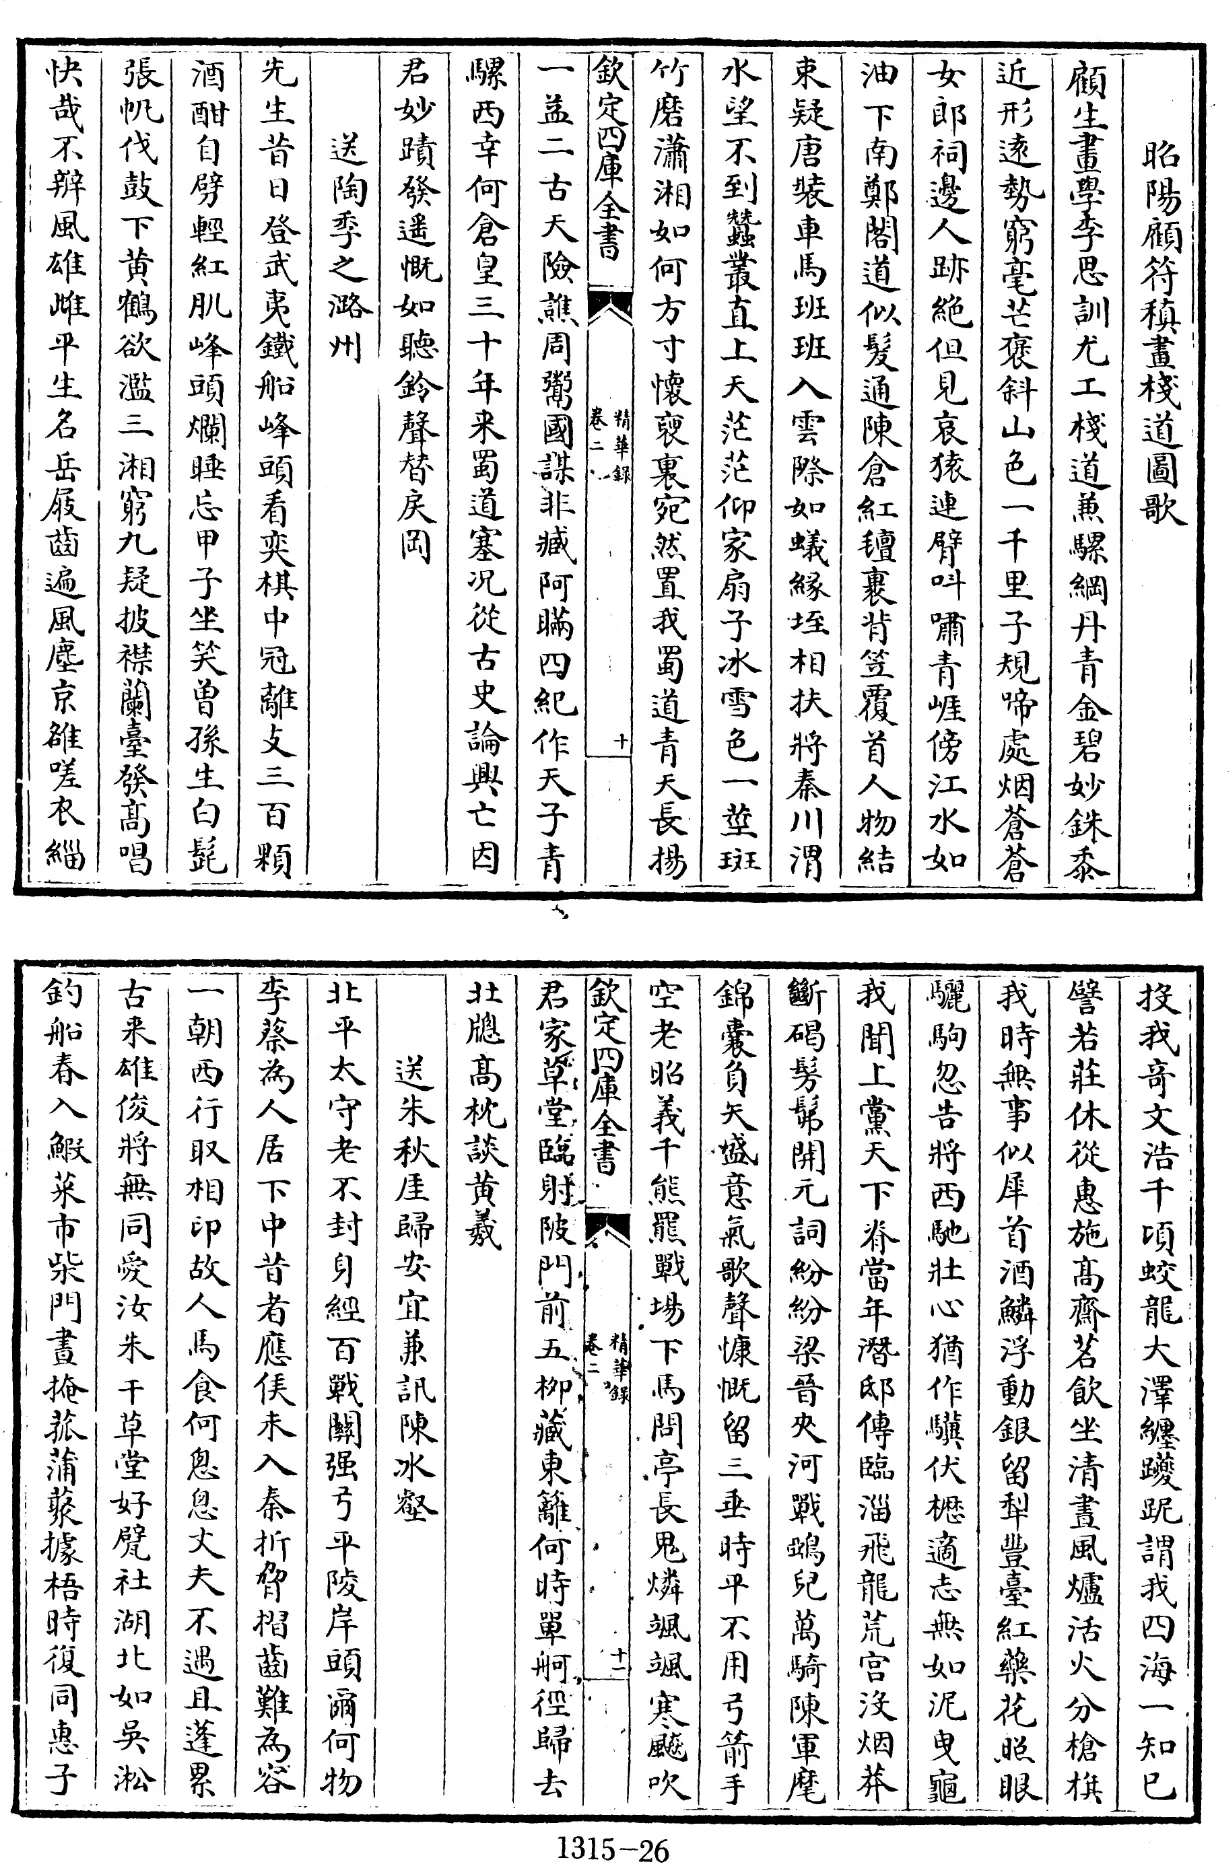 昭陽顧符稹畫棧道圖歌
顧生畫學李思訓尤工棧道兼騾綱丹青金碧妙銖黍
近形遠勢窮毫芒褒斜山色一千里子規啼處烟蒼蒼
女郎祠邊人跡絶但見哀猿連臂呌嘯青崕傍江水如
油下南鄭閣道似髮通陳倉紅氊裹背笠覆首人物結
束疑唐裝車馬班班入雲際如蟻緣垤相扶將秦川渭
水望不到蠶叢直上天茫茫仰家扇子冰雪色一莖斑
竹磨瀟湘如何方寸懷褏裏宛然置我蜀道青天長揚
欽定四庫全書
精華録
卷二
十
一益二古天險譙周鬻國謀非臧阿瞞四紀作天子青
騾西幸何倉皇三十年来蜀道塞况從古史論興亡因
君妙蹟發遥慨如聽鈴聲替戾岡
送陶季之潞州
先生昔日登武夷鐵船峰頭看奕棋中冠離支三百顆
酒酣自劈輕紅肌峰頭爛睡忘甲子坐笑曽孫生白髭
張帆伐鼓下黄鶴欲濫三湘窮九疑披襟蘭臺發髙唱
快哉不辨風雄雌平生名岳屐齒遍風塵京雒嗟衣緇
投我竒文浩千頃蛟龍大澤纏躨跜謂我四海一知已
譬若莊休從惠施髙齋茗飲坐清晝風爐活火分槍旗
我時無事似犀首酒鱗浮動銀留犁豐臺紅藥花照眼
驪駒忽告將西馳壯心猶作驥伏櫪適志無如泥曳龜
我聞上黨天下脊當年潛邸傳臨淄飛龍荒宫没烟莽
斷碣髣髴開元詞紛紛梁晉夾河戰鵶兒萬騎陳軍麾
錦囊負矢盛意氣歌聲慷慨留三垂時平不用弓箭手
空老昭義千熊羆戰場下馬問亭長鬼燐颯颯寒飈吹
欽定四庫全書
精華録
卷二
十一
君家草堂臨射陂門前五栁藏東籬何時單舸徑歸去
北牕髙枕談黄羲
送朱秋厓歸安宜兼訊陳冰壑
北平太守老不封身經百戰關强弓平陵岸頭爾何物
李蔡為人居下中昔者應侯未入秦折脅摺齒難為容
一朝西行取相印故人馬食何怱怱丈夫不遇且蓬累
古来雄俊將無同愛汝朱干草堂好甓社湖北如吳淞
釣船春入鰕菜市柴門晝掩菰蒲藂據梧時復同惠子
1315-26